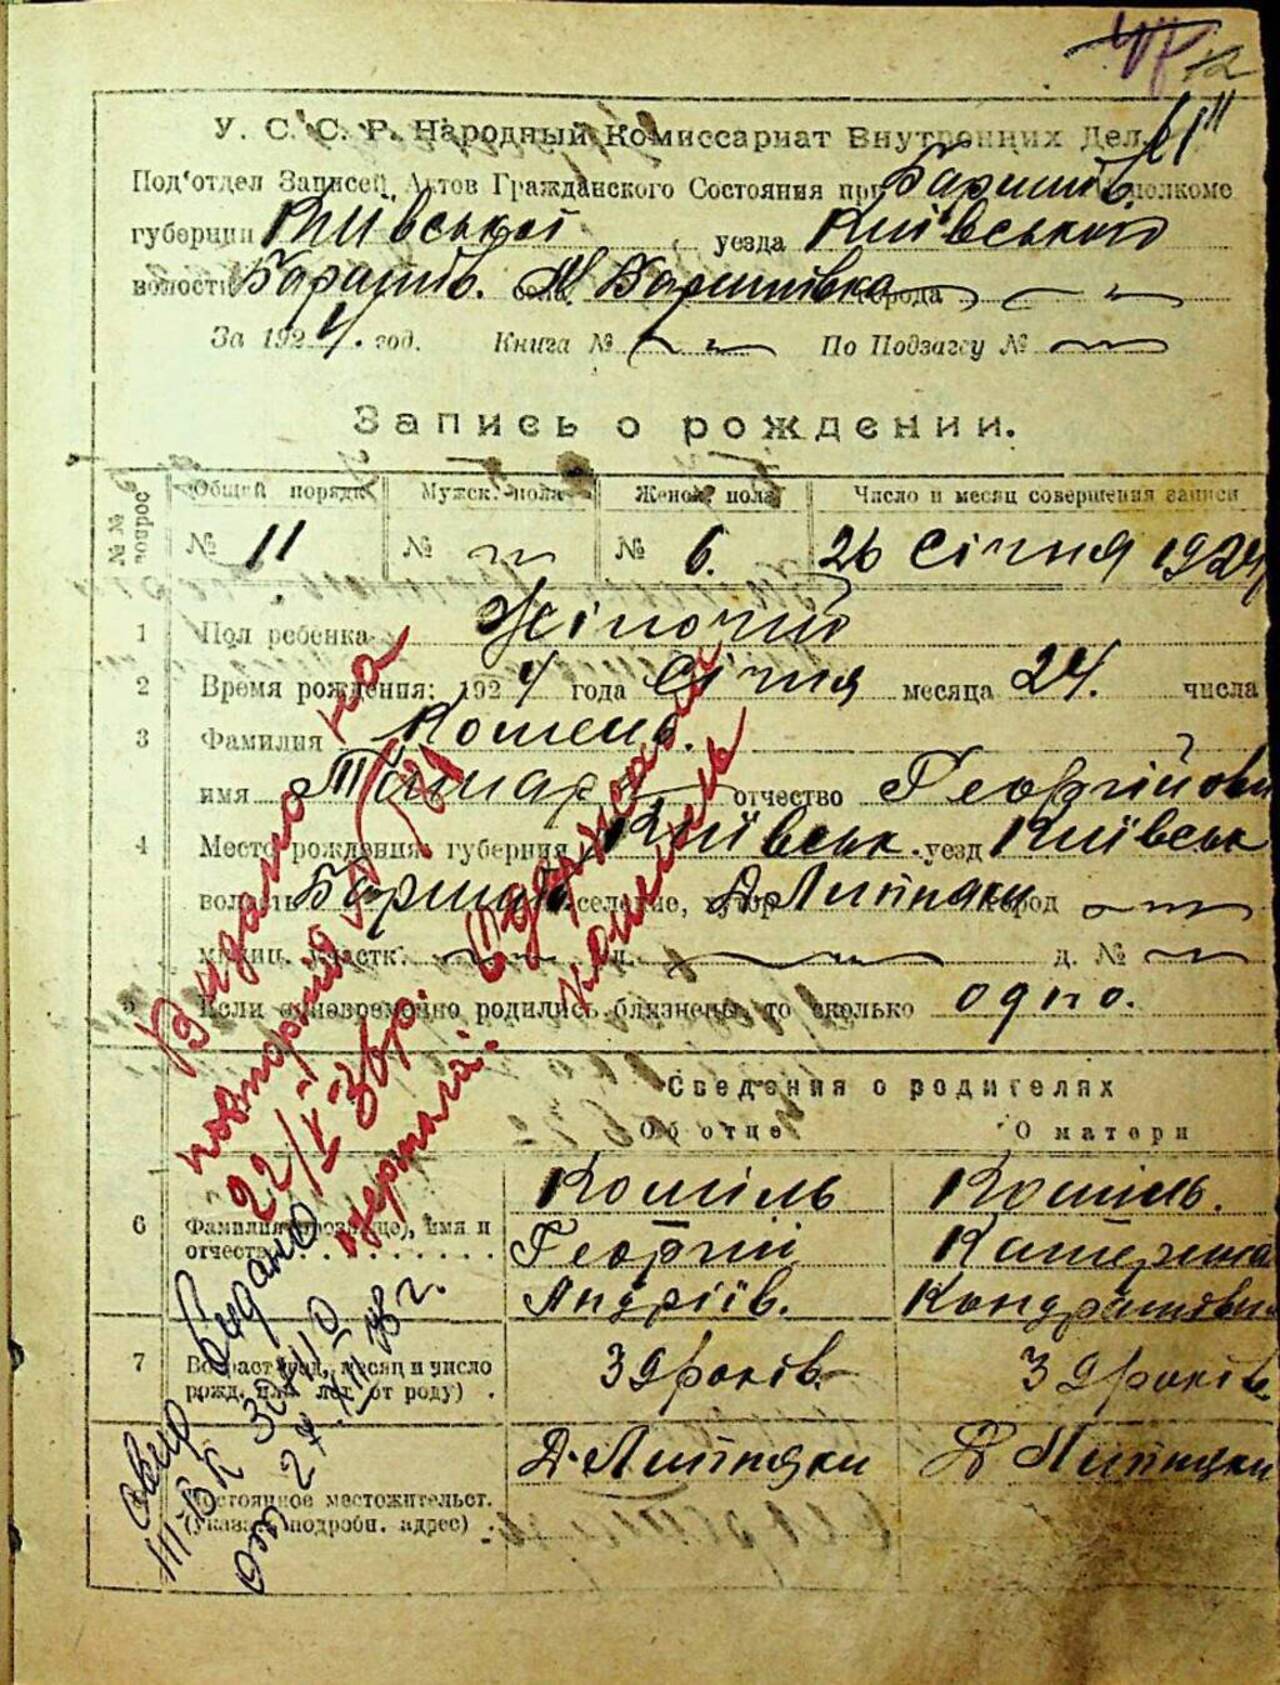 У. С. С. Р. Народный Комиссариат Внутренних Дел.
Под'отдел Записей Актов Гражданского Состояния при Баришів. исполкоме
губернии Київської уезда Київського
волости Баришів. села М Баришівка города
За 1924. год. Книга № По Подзагсу №
Запись о рождении.
№№ вопрос
Общей порядк Мужск. пола Женск. пола Число и месяц совершения записи
№ 11 № № 6. 26 Січня 1924
1 Пол ребенка Жіночий
2 Время рождения: 1924 года Січня месяца 24. числа
3 Фамилия Кошель.
имя Тамара отчество Георгійовн
4 Место рождения: губерния Київськ. уезд Київськ
волость Баришів селение, хутор Д Липняки город
милиц. участк. д. №
5 Если одновременно родились близнецы, то сколько одно.
Сведения о родителях
Об отце О матери
6 Фамилия (прозвище), имя и отчество
Кошіль Кошіль.
Георгій Катерина
Андріїв. Кондратівна
7 Возраст (год, месяц и число рожд. или лет от роду).
39 років 39 років
Постоянное местожительст. (указать подробн. адрес)
Д. Липняки Д Липняки
Видано на
повторно
22/V-36р. Одержала
Кошіль
видано
III-БК
от